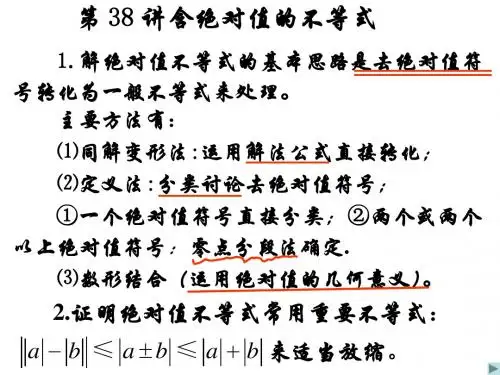 第 38 讲含绝对值的不等式
1. 解绝对值不等式的基本思路是去绝对值符
号转化为一般不等式来处理。
主要方法有：
⑴同解变形法：运用解法公式直接转化；
⑵定义法：分类讨论去绝对值符号；
①一个绝对值符号直接分类；②两个或两个
以上绝对值符号：零点分段法确定.
⑶数形结合（运用绝对值的几何意义）。
2.证明绝对值不等式常用重要不等式：
||a|−|b|| ≤ |a±b| ≤ |a|+|b| 来适当放缩。